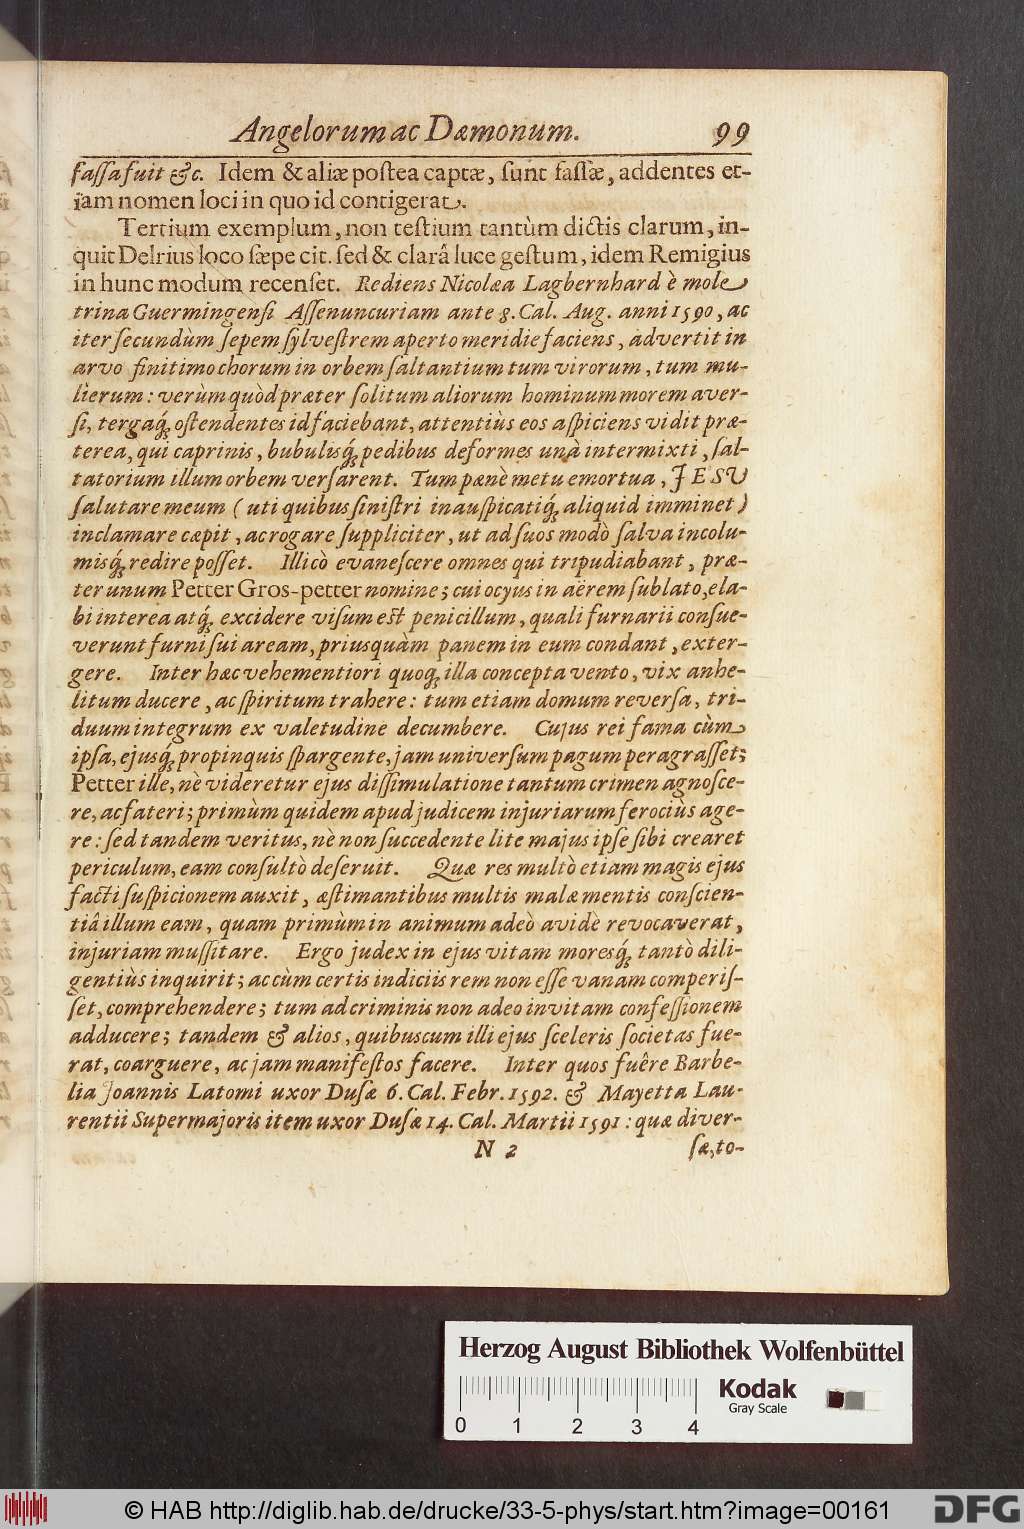 Angelorum ac Dæmonum. 99
fassa fuit &c. Idem & aliæ postea captæ, sunt fassæ, addentes et-
iam nomen loci in quo id contigerat.
Tertium exemplum, non testium tantùm dictis clarum, in-
quit Delrius loco sæpe cit. sed & clarâ luce gestum, idem Remigius
in hunc modum recenset. Rediens Nicolæa Lagbernhard è mole
trina Guermingensi Assenuncuriam ante 8. Cal. Aug. anni 1590, ac
iter secundùm sepem sylvestrem aperto meridie faciens, advertit in
arvo finitimo chorum in orbem saltantium tum virorum, tum mu-
lierum: verùm quòd præter solitum aliorum hominum morem aver-
si, tergaq́; ostendentes id faciebant, attentiùs eos aspiciens vidit præ-
terea, qui caprinis, bubulisq́; pedibus deformes unà intermixti, sal-
tatorium illum orbem versarent. Tum pænè metu emortua, JESU
salutare meum (uti quibus sinistri inauspicatiq́; aliquid imminet)
inclamare cæpit, ac rogare suppliciter, ut ad suos modò salva incolu-
misq́; redire posset. Illicò evanescere omnes qui tripudiabant, præ-
ter unum Petter Gros-petter nomine; cui ocyus in aërem sublato, ela-
bi interea atq́; excidere visum est penicillum, quali furnarii consue-
verunt furni sui aream, priusquàm panem in eum condant, exter-
gere. Inter hæc vehementiori quoq́; illa concepta vento, vix anhe-
litum ducere, ac spiritum trahere: tum etiam domum reversa, tri-
duum integrum ex valetudine decumbere. Cujus rei fama cùm
ipsa, ejusq́; propinquis spargente, jam universum pagum peragrasset;
Petter ille, nè videretur ejus dissimulatione tantum crimen agnosce-
re, ac fateri; primùm quidem apud judicem injuriarum ferociùs age-
re: sed tandem veritus, nè non succedente lite majus ipse sibi crearet
periculum, eam consultò deseruit. Quæ res multò etiam magis ejus
facti suspicionem auxit, æstimantibus multis malæ mentis conscien-
tiâ illum eam, quam primùm in animum adeò avidè revocaverat,
injuriam mussitare. Ergo judex in ejus vitam moresq́; tantò dili-
gentiùs inquirit; ac cùm certis indiciis rem non esse vanam comperis-
set, comprehendere; tum ad criminis non adeo invitam confessionem
adducere; tandem & alios, quibuscum illi ejus sceleris societas fue-
rat, coarguere, ac jam manifestos facere. Inter quos fuêre Barbe-
lia Joannis Latomi uxor Dusæ 6. Cal. Febr. 1592. & Mayetta Lau-
rentii Supermajoris item uxor Dusæ 14. Cal. Martii 1591: quæ diver-
N 2 sæ, to-
Herzog August Bibliothek Wolfenbüttel
Kodak
Gray Scale
0 1 2 3 4
© HAB http://diglib.hab.de/drucke/33-5-phys/start.htm?image=00161
DFG